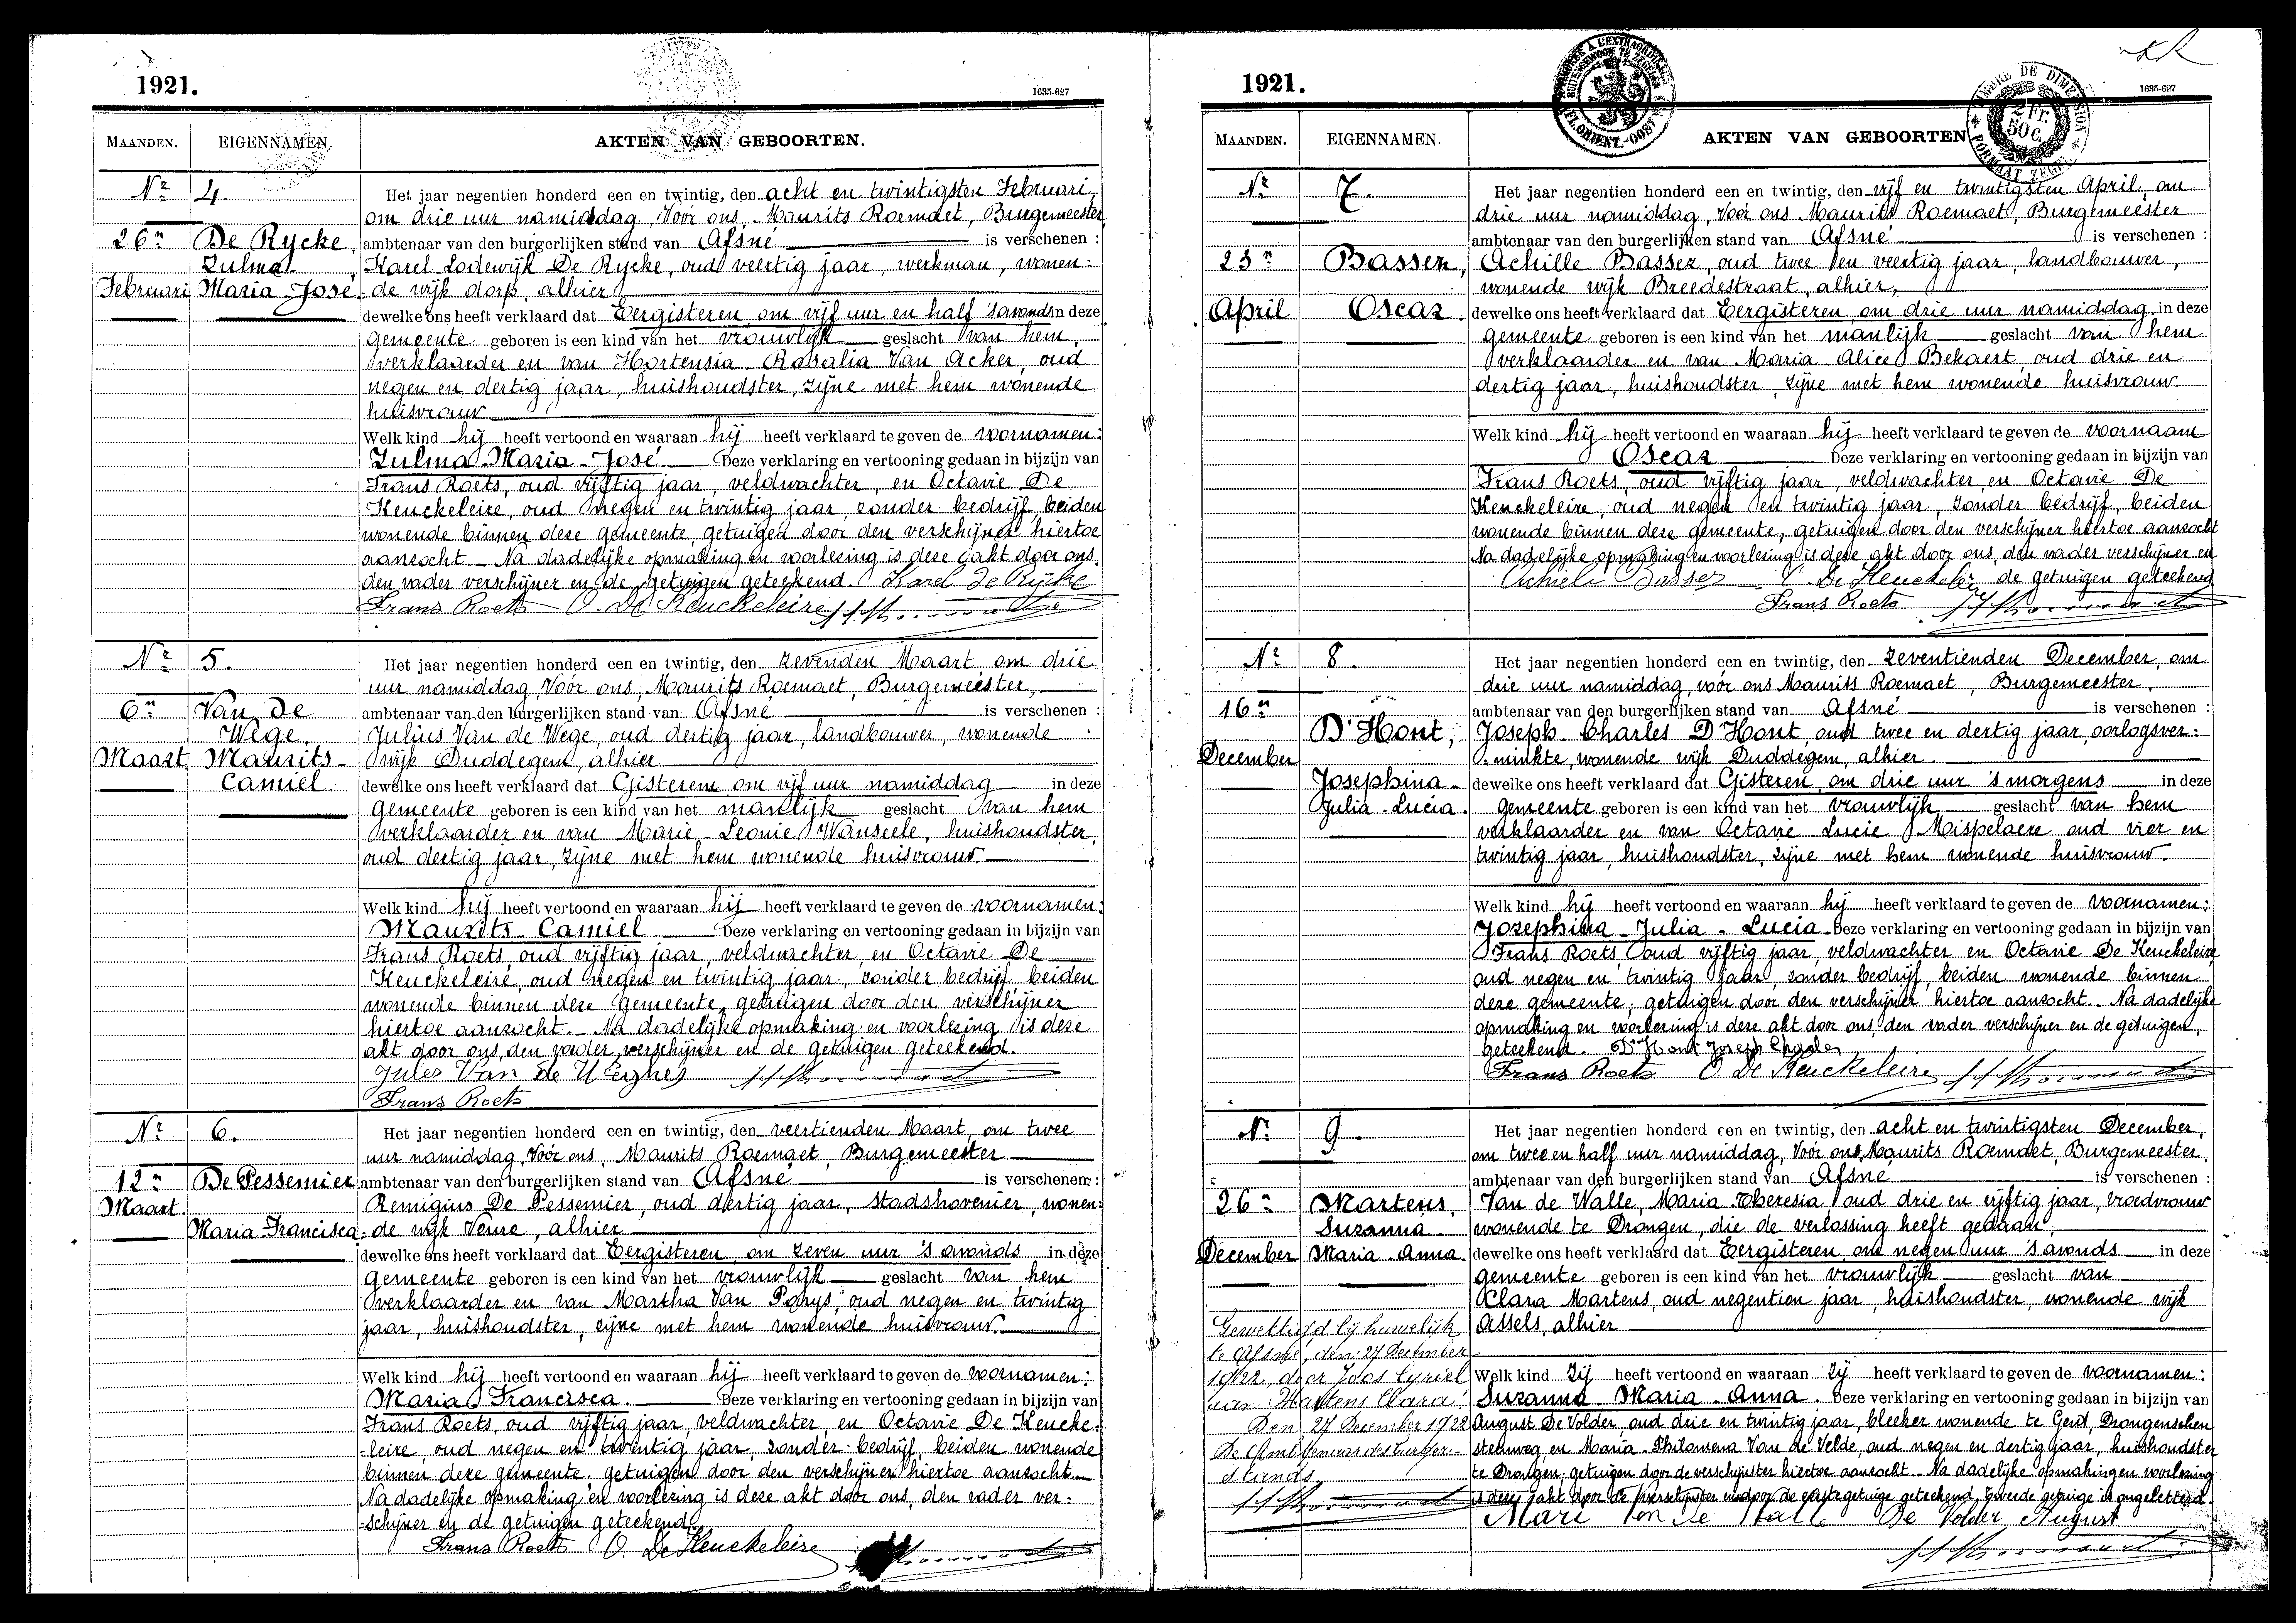 1921.
1635-627
MAANDEN.
EIGENNAMEN.
AKTEN VAN GEBOORTEN.
Nr 4.
26n
Februari
De Rycke,
Zulma
Maria-José
Het jaar negentien honderd een en twintig, den acht en twintigsten Februari
om drie uur namiddag, Vóór ons, Maurits Roemaet, Burgemeester,
ambtenaar van den burgerlijken stand van Afsné is verschenen :
Karel Lodewijk De Rycke, oud veertig jaar, werkman, wonen-
de wijk dorp, alhier
dewelke ons heeft verklaard dat Eergisteren om vijf uur en half 's avonds in deze
gemeente geboren is een kind van het vrouwlijk geslacht van hem,
verklaarder en van Hortensia Rosalia Van Acker, oud
negen en dertig jaar, huishoudster, zijne met hem wonende
huisvrouw
Welk kind hij heeft vertoond en waaraan hij heeft verklaard te geven de voornamen:
Zulma-Maria-José Deze verklaring en vertooning gedaan in bijzijn van
Frans Roets, oud vijftig jaar, veldwachter, en Octavie De
Keuckeleire, oud negen en twintig jaar, zonder bedrijf, beiden
wonende binnen deze gemeente, getuigen door den verschijner hiertoe
aanzocht. Na dadelijke opmaking en voorlezing is deze akt door ons,
den vader verschijner en de getuigen geteekend. Karel De Rijcke
Frans Roets O. De Keuckeleire
Nr 5.
6n
Maart
Van De
Wege,
Maurits-
Camiel.
Het jaar negentien honderd een en twintig, den zevenden Maart, om drie
uur namiddag, Vóór ons, Maurits Roemaet, Burgemeester,
ambtenaar van den burgerlijken stand van Afsné is verschenen :
Julius Van de Wege, oud dertig jaar, landbouwer, wonende
wijk Duddegem, alhier
dewelke ons heeft verklaard dat Gisteren om vijf uur namiddag in deze
gemeente geboren is een kind van het manlijk geslacht van hem
verklaarder en van Marie-Leonie Wanseele, huishoudster,
oud dertig jaar, zijne met hem wonende huisvrouw.
Welk kind hij heeft vertoond en waaraan hij heeft verklaard te geven de voornamen:
Maurits-Camiel Deze verklaring en vertooning gedaan in bijzijn van
Frans Roets, oud vijftig jaar, veldwachter, en Octavie De
Keuckeleire, oud negen en twintig jaar, zonder bedrijf, beiden
wonende binnen deze gemeente, getuigen door den verschijner
hiertoe aanzocht. Na dadelijke opmaking en voorlezing is deze
akt door ons, den vader verschijner en de getuigen geteekend.
Jules Van de Weghe
Frans Roets
Nr 6.
12n
Maart
De Pessemier
Maria-Francisca
Het jaar negentien honderd een en twintig, den veertienden Maart, om twee
uur namiddag, Vóór ons, Maurits Roemaet, Burgemeester
ambtenaar van den burgerlijken stand van Afsné is verschenen :
Remigius De Pessemier, oud dertig jaar, stadshovenier, wonen-
de wijk Veure, alhier
dewelke ons heeft verklaard dat Eergisteren om zeven uur 's avonds in deze
gemeente geboren is een kind van het vrouwlijk geslacht van hem
verklaarder en van Martha Van Parys, oud negen en twintig
jaar, huishoudster, zijne met hem wonende huisvrouw.
Welk kind hij heeft vertoond en waaraan hij heeft verklaard te geven de voornamen:
Maria Francisca. Deze verklaring en vertooning gedaan in bijzijn van
Frans Roets, oud vijftig jaar, veldwachter, en Octavie De Keucke-
-leire, oud negen en twintig jaar, zonder bedrijf, beiden wonende
binnen deze gemeente, getuigen door den verschijner hiertoe aanzocht.
Na dadelijke opmaking en voorlezing is deze akt door ons, den vader ver-
-schijner en de getuigen geteekend.
Frans Roets O. De Keuckeleire
1921.
2 Fr.
50 c.
1635-627
MAANDEN.
EIGENNAMEN.
AKTEN VAN GEBOORTEN
Nr 7.
23n
April
Basser,
Oscar.
Het jaar negentien honderd een en twintig, den vijf en twintigsten April, om
drie uur namiddag, Vóór ons Maurits Roemaet, Burgemeester
ambtenaar van den burgerlijken stand van Afsné is verschenen :
Achille Basser, oud twee en veertig jaar, landbouwer,
wonende wijk Breedestraat, alhier,
dewelke ons heeft verklaard dat Eergisteren om drie uur namiddag in deze
gemeente geboren is een kind van het manlijk geslacht van hem
verklaarder en van Maria Alice Bekaert, oud drie en
dertig jaar, huishoudster, zijne met hem wonende huisvrouw
Welk kind hij heeft vertoond en waaraan hij heeft verklaard te geven de voornaam
Oscar Deze verklaring en vertooning gedaan in bijzijn van
Frans Roets, oud vijftig jaar, veldwachter, en Octavie De
Keuckeleire, oud negen en twintig jaar, zonder bedrijf, beiden
wonende binnen deze gemeente, getuigen door den verschijner hiertoe aanzocht
Na dadelijke opmaking en voorlezing is deze akt door ons, den vader verschijner en
Achiel Basser O. De Keuckeleire de getuigen geteekend
Frans Roets
Nr 8.
16n
December
D'Hont,
Josephina-
Julia-Lucia.
Het jaar negentien honderd een en twintig, den zeventienden December, om
drie uur namiddag, vóór ons Maurits Roemaet, Burgemeester,
ambtenaar van den burgerlijken stand van Afsné is verschenen :
Joseph-Charles D'Hont, oud twee en dertig jaar, oorlogsver-
-minkte, wonende wijk Duddegem, alhier
dewelke ons heeft verklaard dat Gisteren, om drie uur 's morgens in deze
gemeente geboren is een kind van het vrouwlijk geslacht van hem
verklaarder en van Octavie-Lucie Mispelaere, oud vier en
twintig jaar, huishoudster, zijne met hem wonende huisvrouw.
Welk kind hij heeft vertoond en waaraan hij heeft verklaard te geven de voornamen:
Josephina-Julia-Lucia Deze verklaring en vertooning gedaan in bijzijn van
Frans Roets, oud vijftig jaar, veldwachter, en Octavie De Keuckeleire
oud negen en twintig jaar, zonder bedrijf, beiden wonende binnen
deze gemeente, getuigen door den verschijner hiertoe aanzocht. Na dadelijke
opmaking en voorlezing is deze akt door ons, den vader verschijner en de getuigen,
geteekend. D'Hont Joseph Charles
Frans Roets O. De Keuckeleire
Nr 9.
26n
December
Martens,
Suzanna
Maria-Anna
Het jaar negentien honderd een en twintig, den acht en twintigsten December,
om twee en half uur namiddag, Vóór ons, Maurits Roemaet, Burgemeester,
ambtenaar van den burgerlijken stand van Afsné is verschenen :
Van de Walle, Maria-Theresia oud drie en vijftig jaar, vroedvrouw
wonende te Drongen, die de verlossing heeft gedaan,
dewelke ons heeft verklaard dat Eergisteren om negen uur 's avonds in deze
gemeente geboren is een kind van het vrouwlijk geslacht van
Clara Martens, oud negentien jaar, huishoudster, wonende wijk
Assels, alhier
Welk kind zij heeft vertoond en waaraan zij heeft verklaard te geven de voornamen:
Suzanna-Maria-Anna. Deze verklaring en vertooning gedaan in bijzijn van
August De Volder, oud drie en twintig jaar, bleeker wonende te Gent, Drongenschen
steenweg, en Maria-Philomena Van de Velde, oud negen en dertig jaar, huishoudster
te Drongen, getuigen door de verschijnster hiertoe aanzocht. Na dadelijke opmaking en voorlezing
is deze akt door de verschijnster en door de eerste getuige geteekend, tweede getuige is ongeletterd.
De Volder August
Gewettigd bij huwelijk
te Afsné, den 27 December
1922, door Joos Cyriel
van Martens Clara.
Den 27 December 1922
De Ambtenaar des burger-
stands